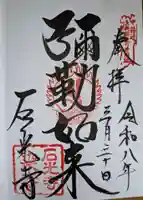 奉拝
令和八年
三月二十日
彌勒如来
石光寺